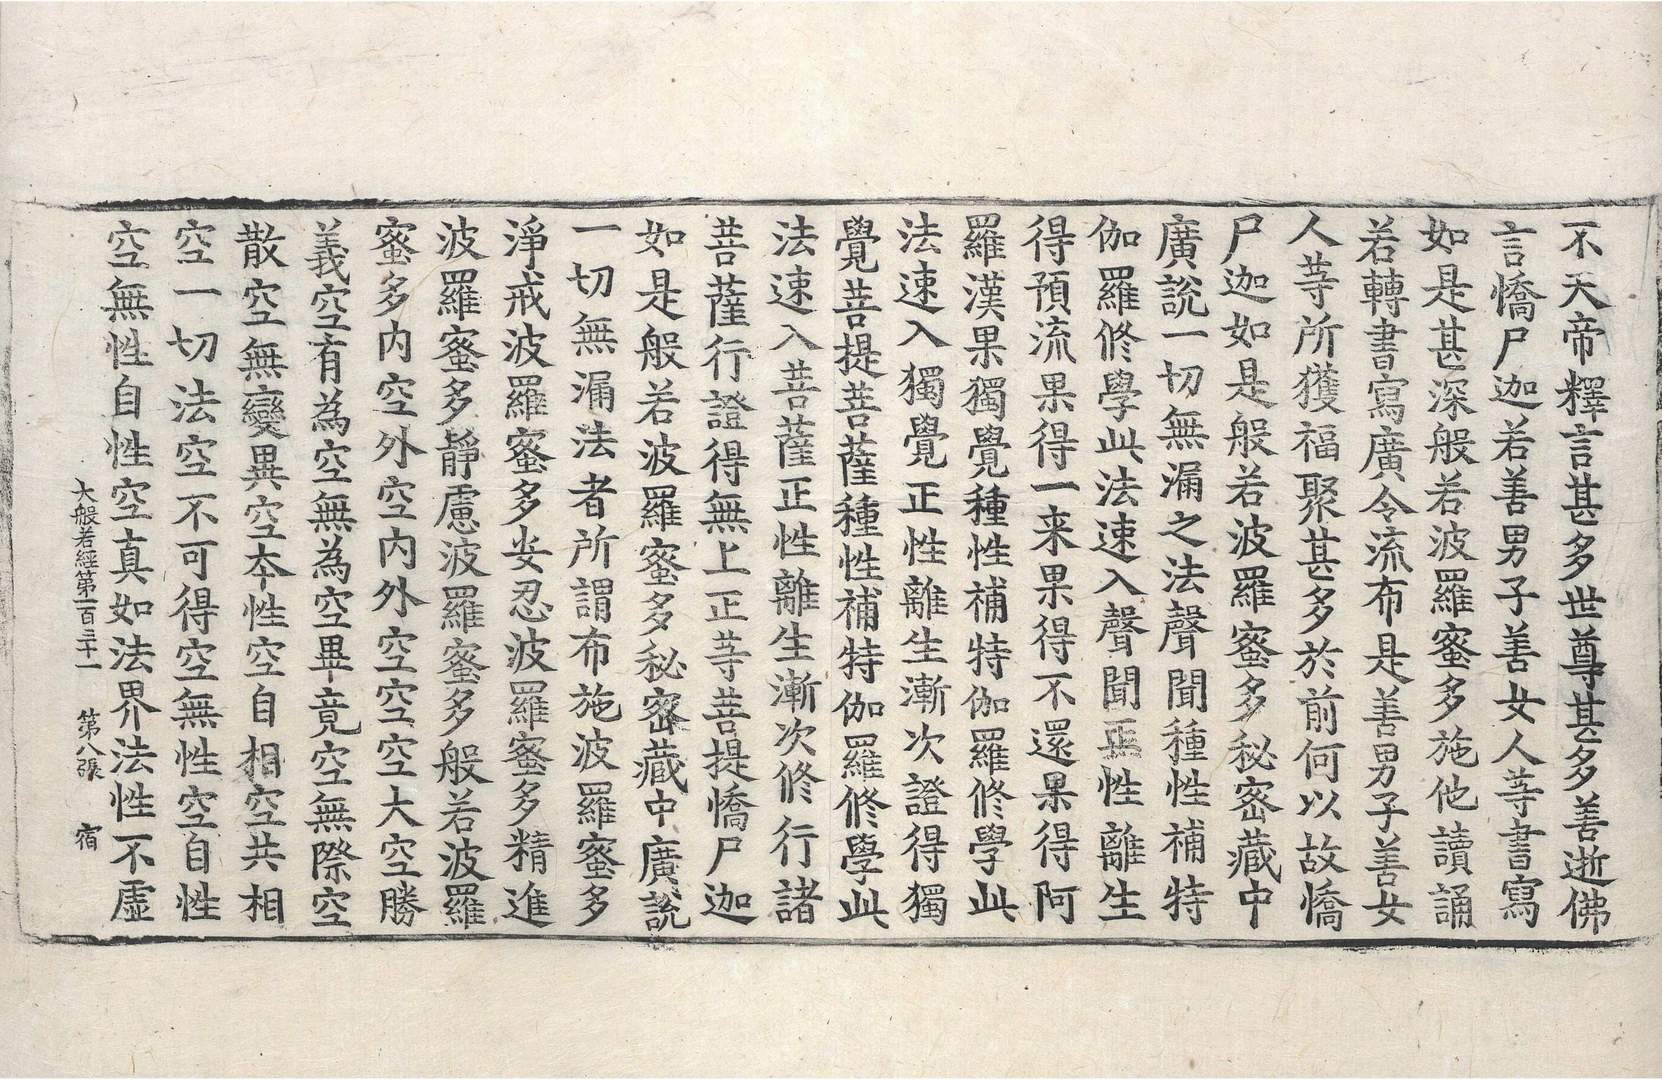 不天帝釋言甚多世尊甚多善逝佛
言憍尸迦若善男子善女人等書寫
如是甚深般若波羅蜜多施他讀誦
若轉書寫廣令流布是善男子善女
人等所獲福聚甚多於前何以故憍
尸迦如是般若波羅蜜多秘密藏中
廣說一切無漏之法聲聞種性補特
伽羅修學此法速入聲聞正性離生
得預流果得一来果得不還果得阿
羅漢果獨覺種性補特伽羅修學此
法速入獨覺正性離生漸次證得獨
覺菩提菩薩種性補特伽羅修學此
法速入菩薩正性離生漸次修行諸
菩薩行證得無上正等菩提憍尸迦
如是般若波羅蜜多秘密藏中廣說
一切無漏法者所謂布施波羅蜜多
淨戒波羅蜜多安忍波羅蜜多精進
波羅蜜多靜慮波羅蜜多般若波羅
蜜多內空外空內外空空空大空勝
義空有為空無為空畢竟空無際空
散空無變異空本性空自相空共相
空一切法空不可得空無性空自性
空無性自性空真如法界法性不虛
大般若經第一百三十一　第八張　宿